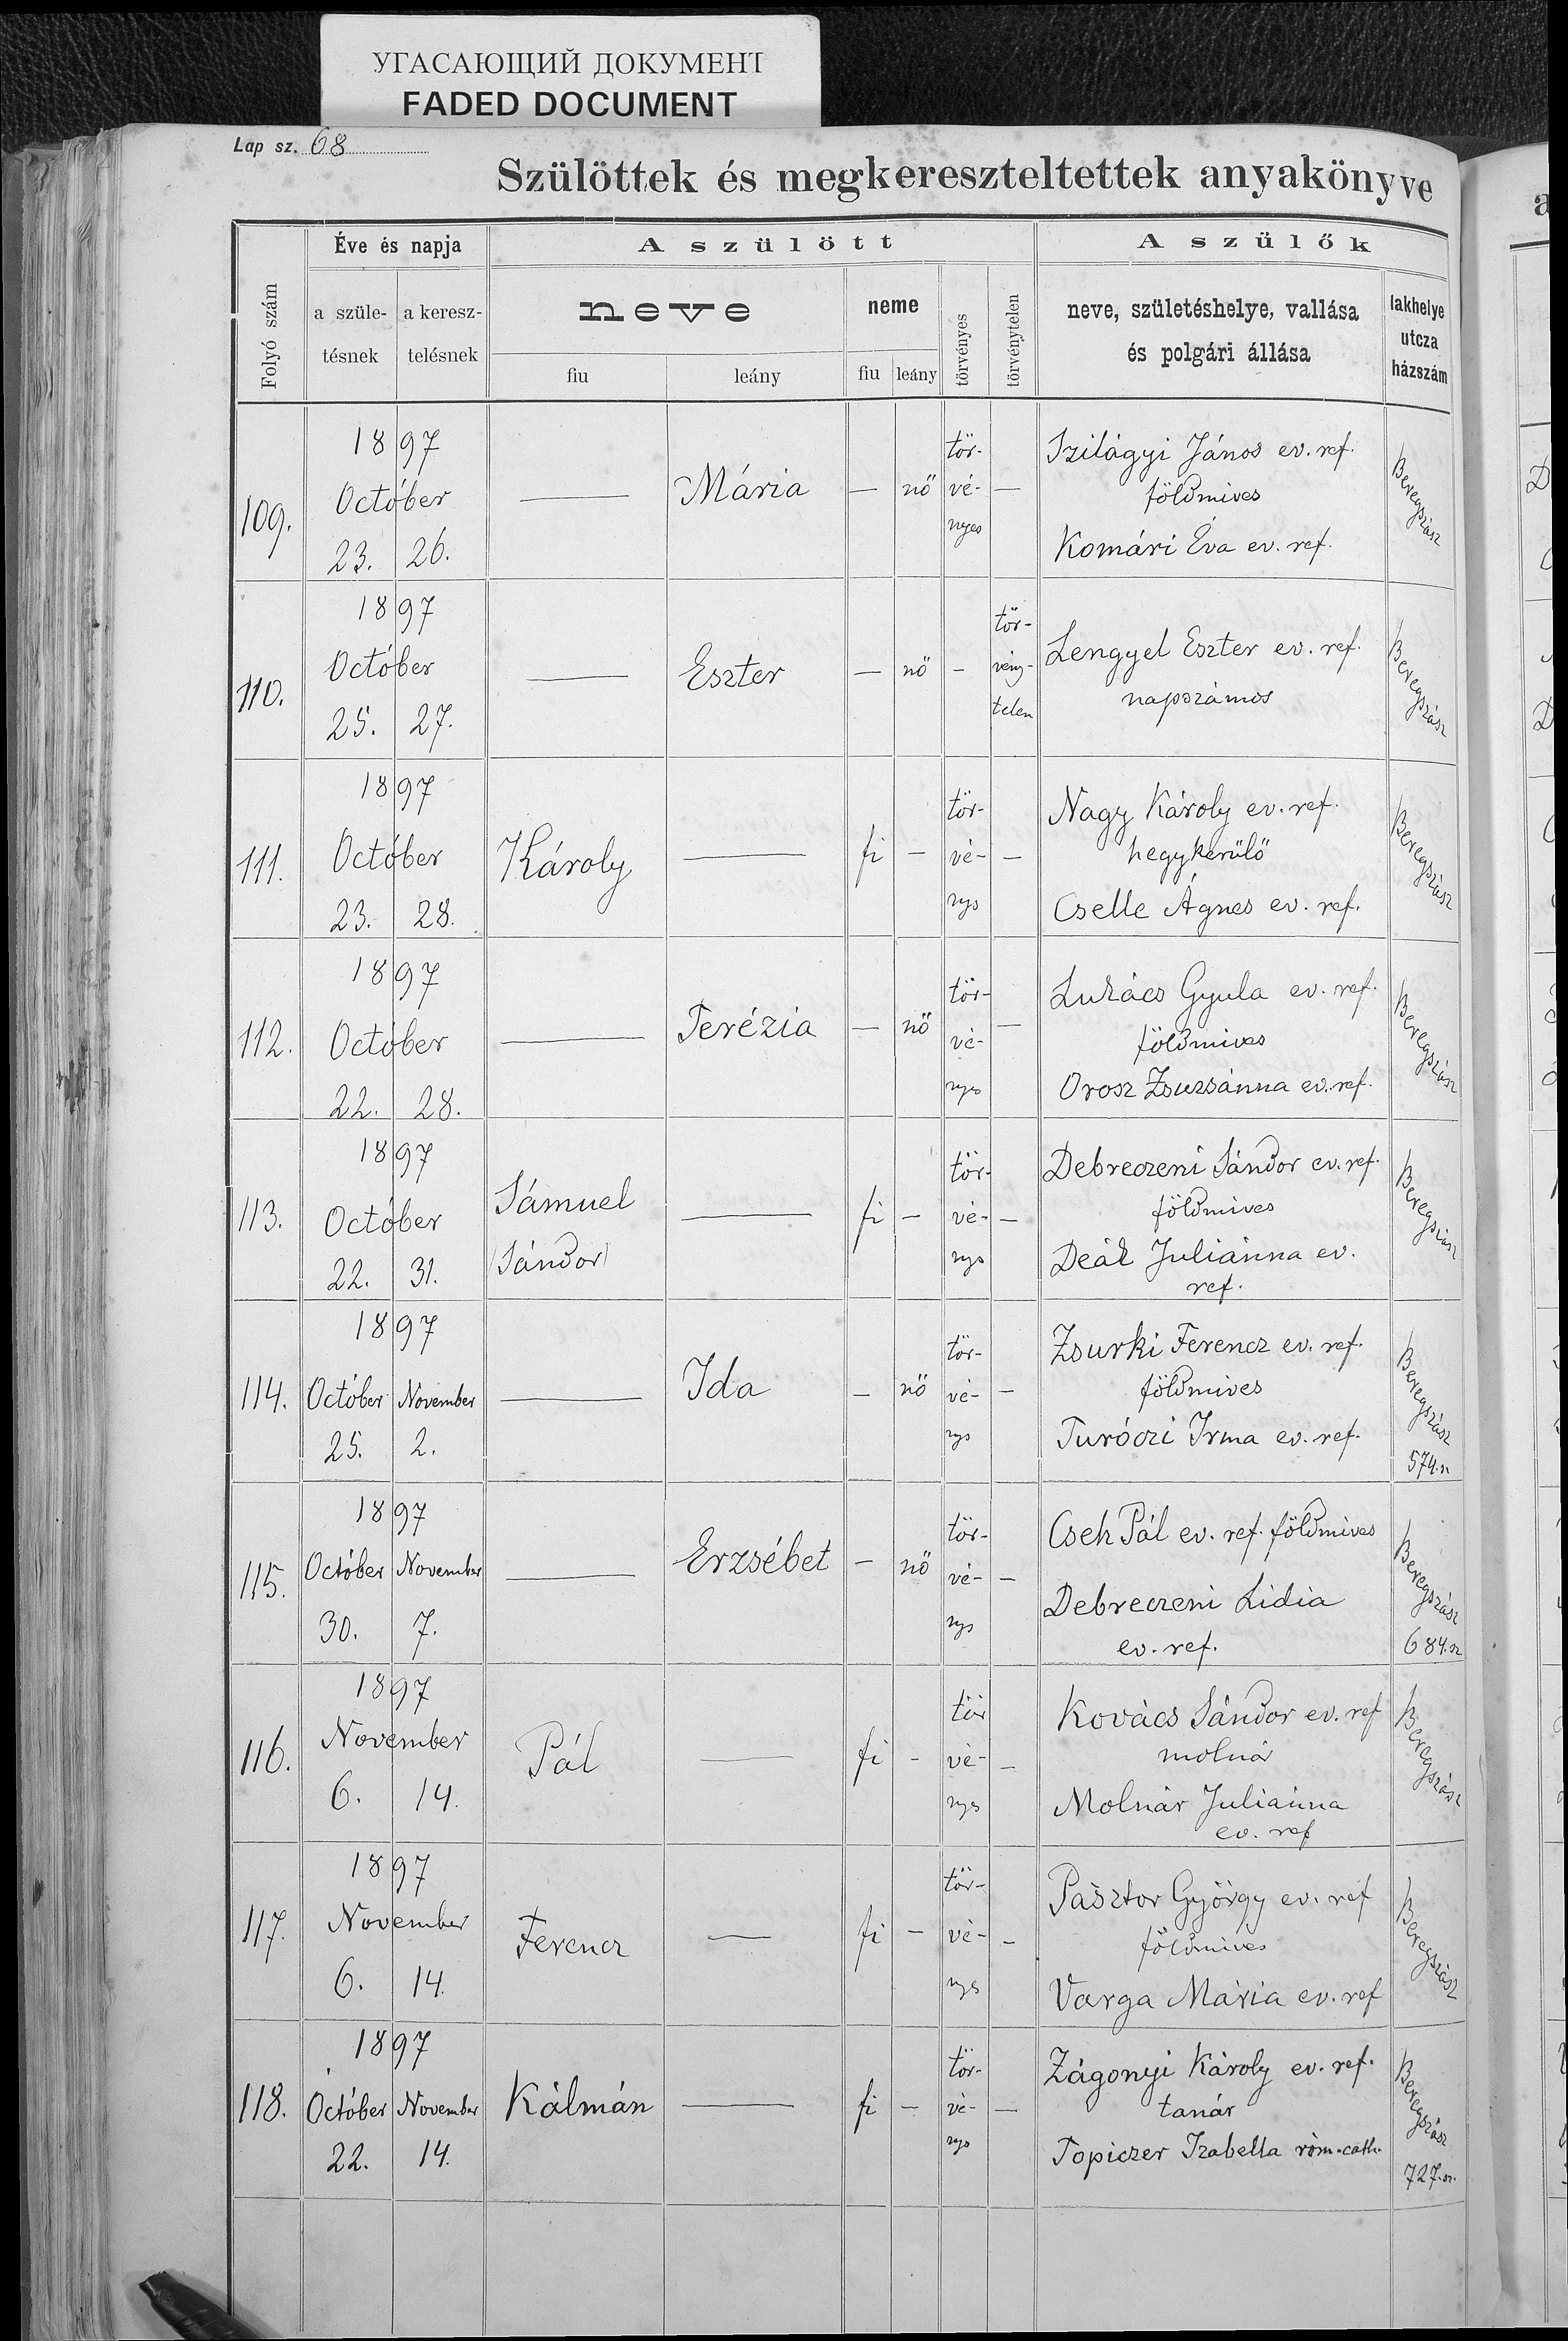 УГАСАЮЩИЙ ДОКУМЕНТ
FADED DOCUMENT
Lap sz. 68
Szülöttek és megkereszteltettek anyakönyve
Folyó szám
Éve és napja
a születésnek
a keresztelésnek
A szülött
neve
fiu
leány
neme
fiu
leány
törvényes
törvénytelen
A szülők
neve, születéshelye, vallása
és polgári állása
lakhelye
utcza
házszám
109. 1897 Octóber 23. 26. — Mária — nő törvényes — Szilágyi János ev. ref.
földmives
Komári Éva ev. ref.
Beregszász
110. 1897 Octóber 25. 27. — Eszter — nő — törvénytelen Lengyel Eszter ev. ref.
napszámos
Beregszász
111. 1897 Octóber 23. 28. Károly — fi — törvénys — Nagy Károly ev. ref.
hegykerülő
Cselle Ágnes ev. ref.
Beregszász
112. 1897 Octóber 22. 28. — Terézia — nő törvényes — Lukács Gyula ev. ref.
földmives
Orosz Zsuzsánna ev. ref.
Beregszász
113. 1897 Octóber 22. 31. Sámuel
(Sándor)
— fi — törvénys — Debreczeni Sándor ev. ref.
földmives
Deák Juliánna ev.
ref.
Beregszász
114. 1897 Octóber 25. November 2. — Ida — nő törvénys — Zsurki Ferencz ev. ref.
földmives
Turóczi Irma ev. ref.
Beregszász
574. sz
115. 1897 Octóber 30. November 7. — Erzsébet — nő törvénys — Cseh Pál ev. ref. földmives
Debreczeni Lidia
ev. ref.
Beregszász
684. sz
116. 1897 November 6. 14. Pál — fi - törvényes — Kovács Sándor ev. ref
molnár
Molnár Juliánna
ev. ref
Beregszász
117. 1897 November 6. 14. Ferencz — fi — törvényes — Pásztor György ev. ref
földmives
Varga Mária ev. ref
Beregszász
118. 1897 Octóber 22. November 14. Kálmán — fi — törvényes — Zágonyi Károly ev. ref.
tanár
Topiczer Izabella róm. cath.
Beregszász
727. sz.